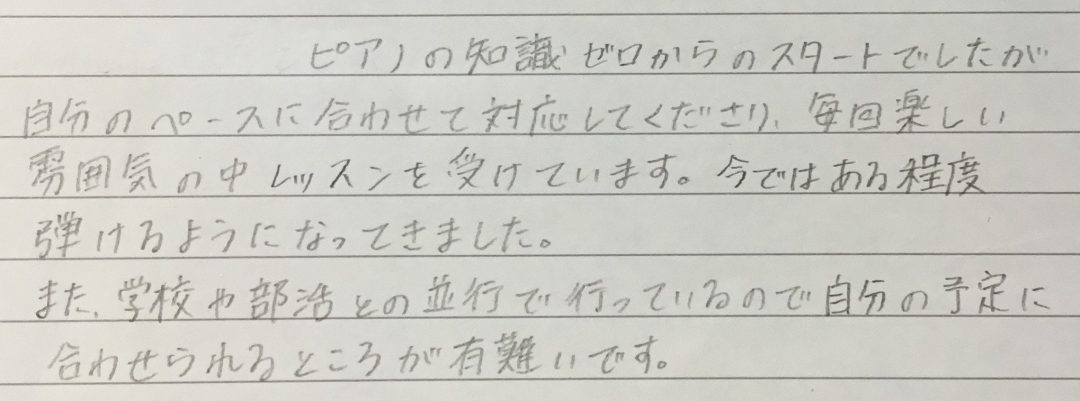 ピアノの知識ゼロからのスタートでしたが
自分のペースに合わせて対応してくださり、毎回楽しい
雰囲気の中レッスンを受けています。今ではある程度
弾けるようになってきました。
また、学校や部活との並行で行っているので自分の予定に
合わせられるところが有難いです。